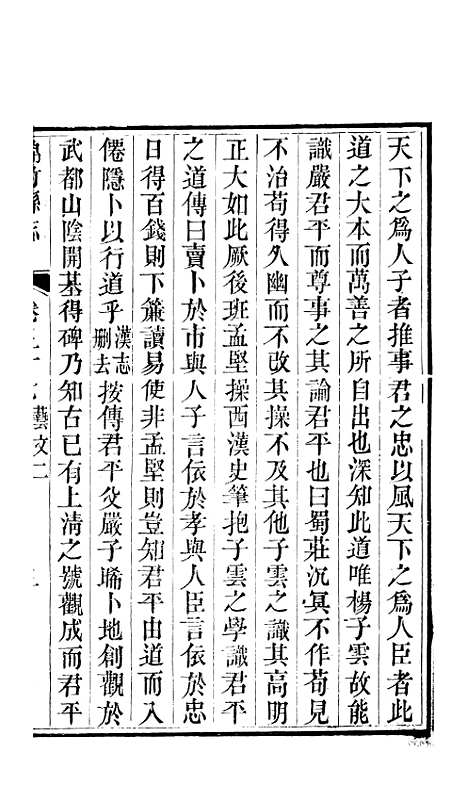 天下之爲人子者推事君之忠以風天下之爲人臣者此
道之大本而萬善之所自出也深知此道唯楊子雲故能
識嚴君平而尊事之其論君平也曰蜀莊沉冥不作苟見
不治苟得久幽而不改其操不及其他子雲之識其高明
正大如此厥後班孟堅操西漢史筆抱子雲之學識君平
之道傳曰賣卜於市與人子言依於孝與人臣言依於忠
日得百錢則下簾讀易使非孟堅則豈知君平由道而入
僊隱卜以行道乎漢志刪去按傳君平父嚴子晞卜地創觀於
武都山陰開基得碑乃知古已有上清之號觀成而君平
竹縣志 卷之十 藝文二